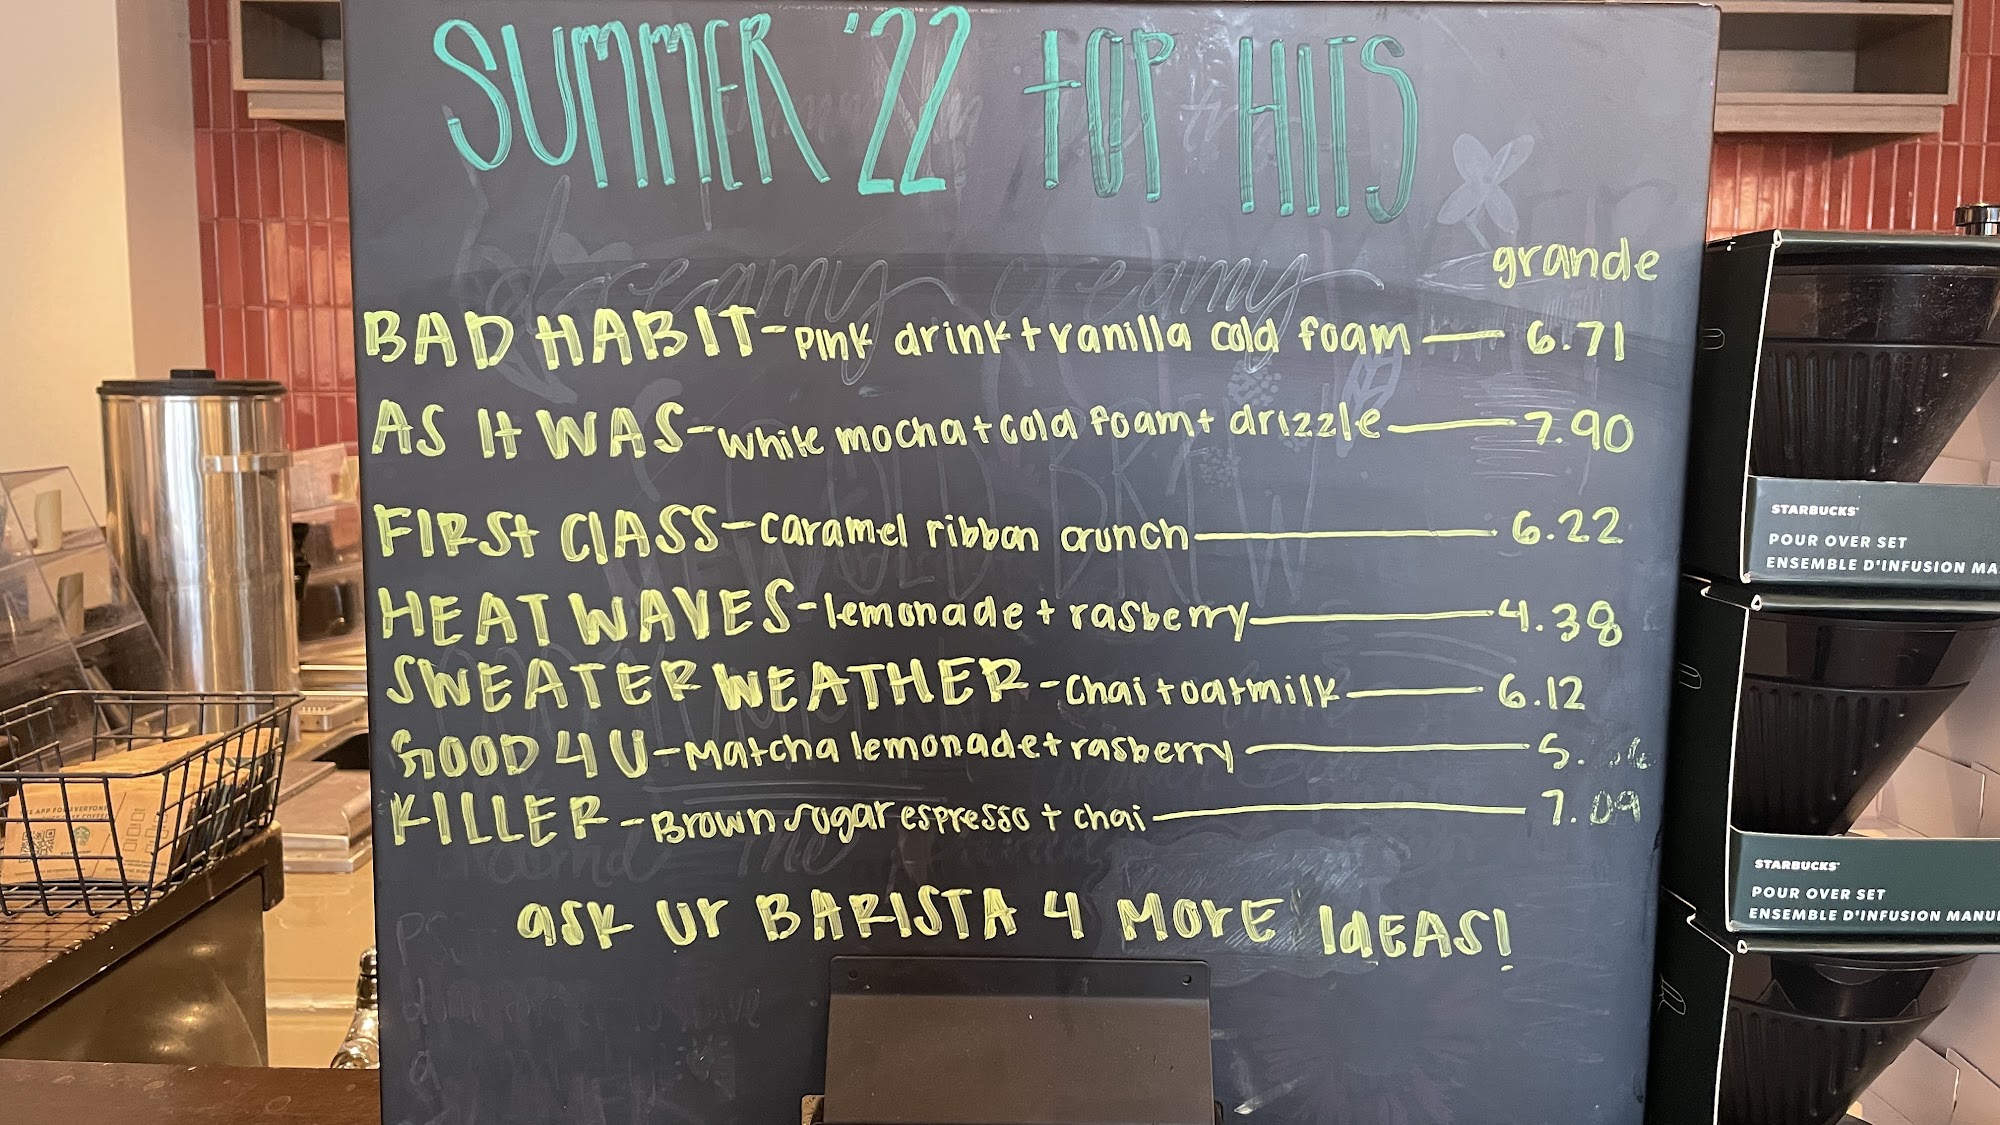 SUMMER '22 TOP HITS
grande
BAD HABIT - Pink drink + vanilla cold foam — 6.71
AS It WAS - white mocha + cold foam + drizzle — 7.90
FIRSt ClASS - caramel ribbon crunch — 6.22
HEAT WAVES - lemonade + rasberry — 4.38
SWEATER WEATHER - Chai + oatmilk — 6.12
GOOD 4 U - Matcha lemonade + rasberry — 5.
KILLER - Brown sugar espresso + chai — 7.09
ask ur BARISTA 4 MORE IdEAS!
dreamy creamy
COLD BREW
STARBUCKS
POUR OVER SET
ENSEMBLE D'INFUSION MA
STARBUCKS
POUR OVER SET
ENSEMBLE D'INFUSION MANU